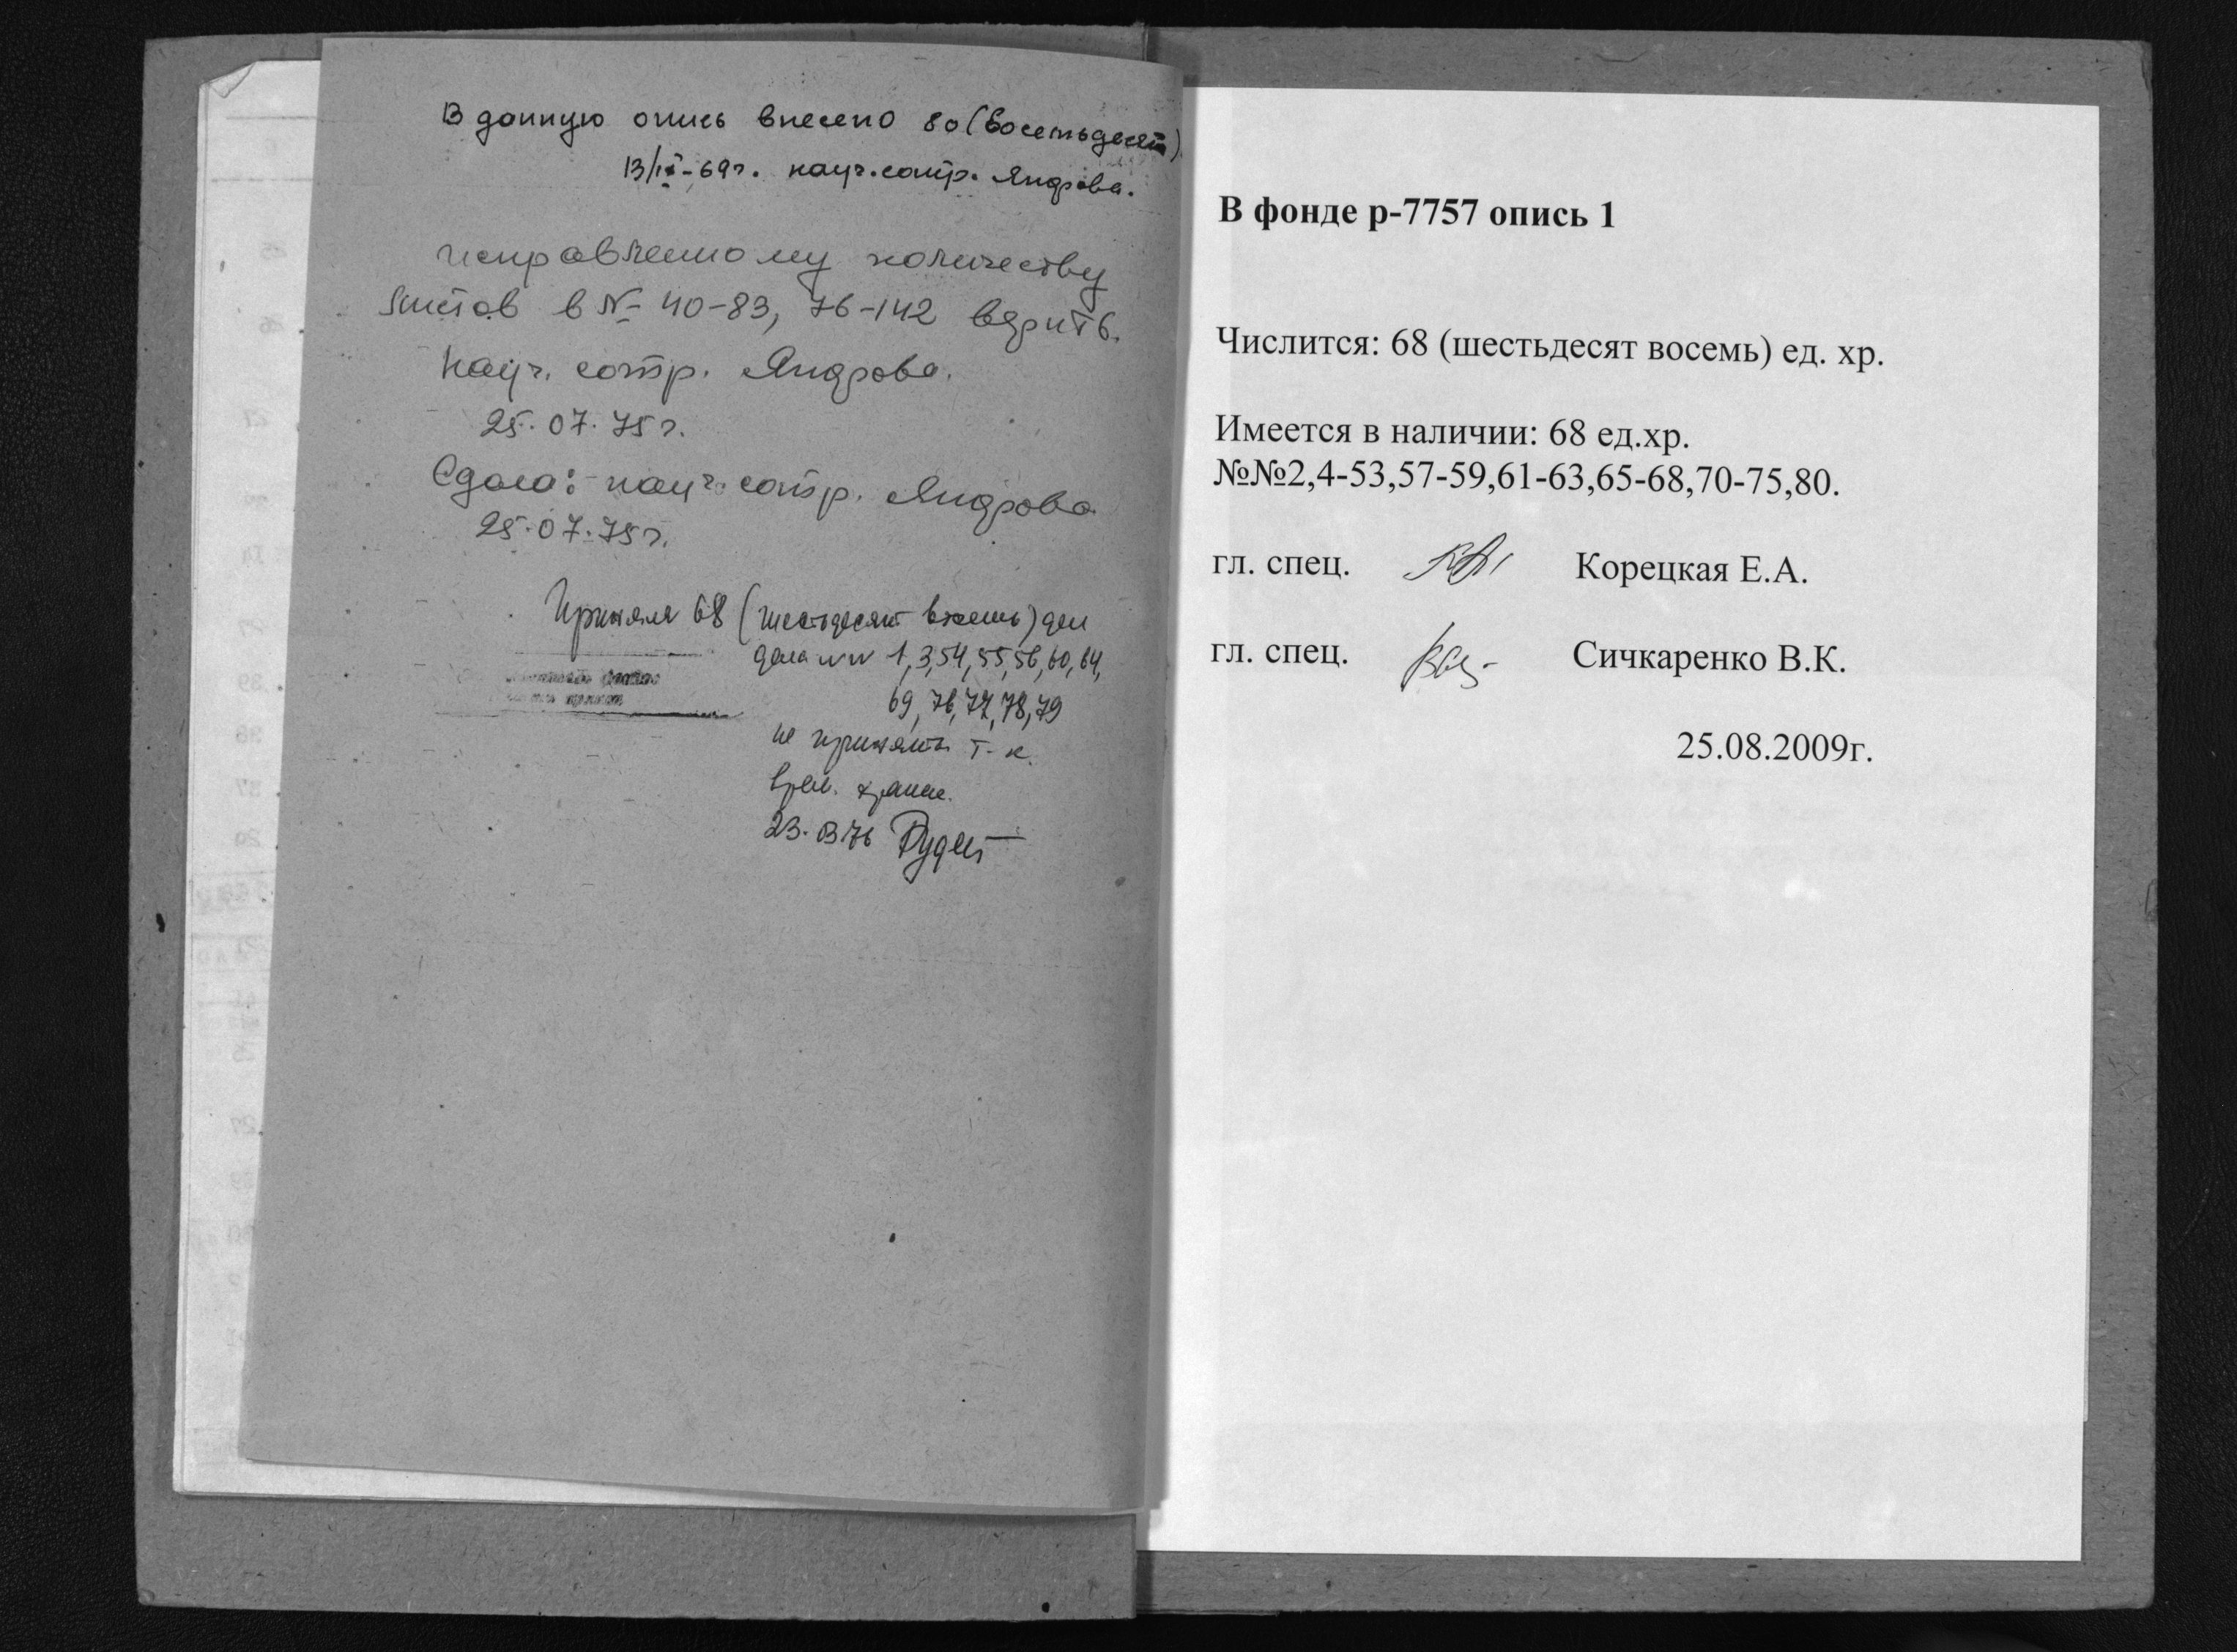 В данную опись внесено 80 (восемьдесят)
13/IX-69г. науч.сотр. Яндрова.
исправленному количеству
листов в № 40-83, 76-142 верить.
Науч. сотр. Яндрова.
25.07.75г.
Сдала: науч. сотр. Яндрова
25.07.75г.
Приняла 68 (шестьдесят восемь) дел
дела №№ 1,3,54,55,56,60,64,
69,76,77,78,79
не приняты т.к.
врем. хранен.
23.03.76
В фонде р-7757 опись 1
Числится: 68 (шестьдесят восемь) ед. хр.
Имеется в наличии: 68 ед.хр.
№№2,4-53,57-59,61-63,65-68,70-75,80.
гл. спец. Корецкая Е.А.
гл. спец. Сичкаренко В.К.
25.08.2009г.